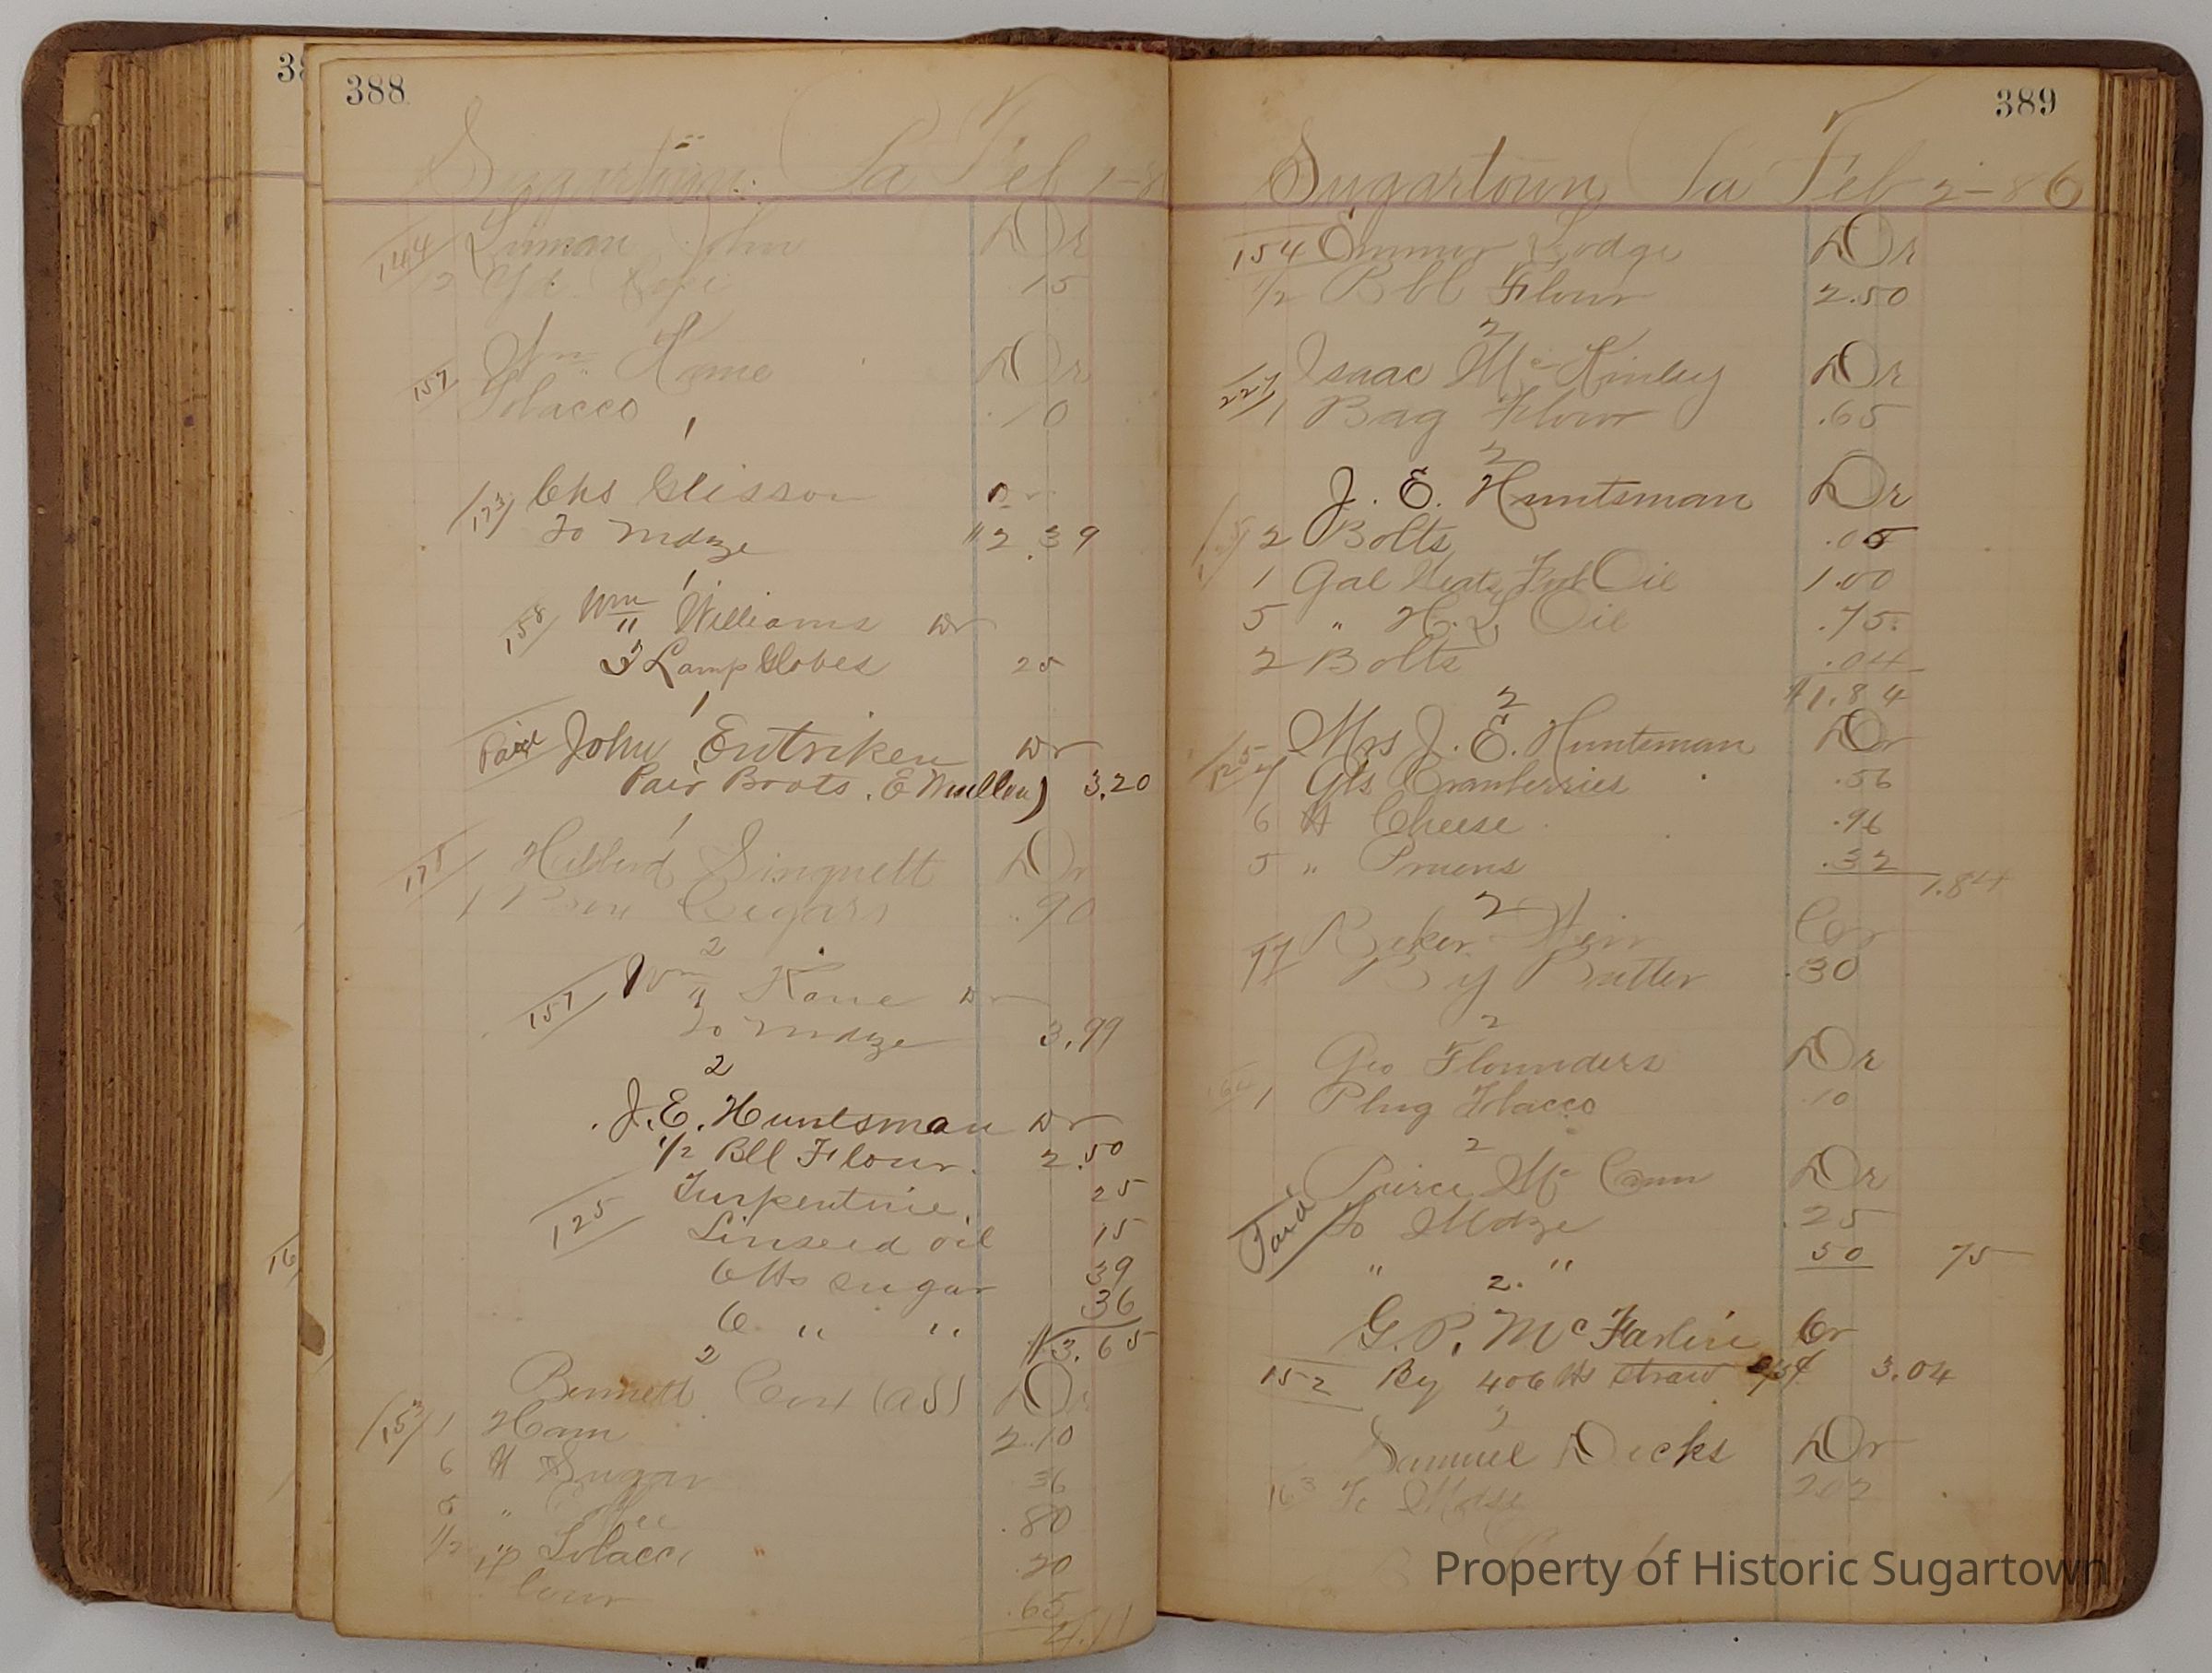 388
Sugartown Pa Feb 1-8
144 John Dr
12 Yd Rope .15
157 Wm Kane Dr
Tobacco .10
1
173 Chs Glisson Dr
To Mdze "2.39
1
158 Wm Williams Dr
3 Lamp Globes 25
1
Paid John Entriken Dr
Pair Boots. (E Mullen) 3.20
1
175 Hibberd Dr
1 Box Cigars .90
2
157 Wm Kane Dr
To Mdze 3.99
2
J. E. Huntsman Dr
1/2 Bll Flour. 2.50
Turpentine. 25
125 Linseed oil 15
6 lbs sugar 39
6 " " 36
$3.65
2
Bennett (AS) Dr
153 1 Ham 2.10
6 # Sugar 36
5 " Coffee .80
1/2 " Tobacco .20
.65
4.11
389
Sugartown Pa Feb 2-86
154 Emmor Lodge Dr
1/2 Bbl Flour 2.50
2
227 Isaac McKinley Dr
1 Bag Flour .65
2
J. E. Huntsman Dr
2 Bolts .05
1 Gal Neats Foot Oil 1.00
5 " H. L. Oil .75
2 Bolts .04
$1.84
2
Mrs J. E. Huntsman Dr
125 4 Qts Cranberries .56
6 # Cheese .96
5 " Pruens .32
1.84
2
77 Cr
By Butter .30
2
Geo Flounders Dr
1 Plug Tobacco .10
2
Pierce McCann Dr
Paid To Mdze .25
" " 50 75
2.
G. P. McFarline Cr
152 By 406 lbs straw 3.04
2
Samuel Decks Dr
163 To Mdse 2.02
Property of Historic Sugartown